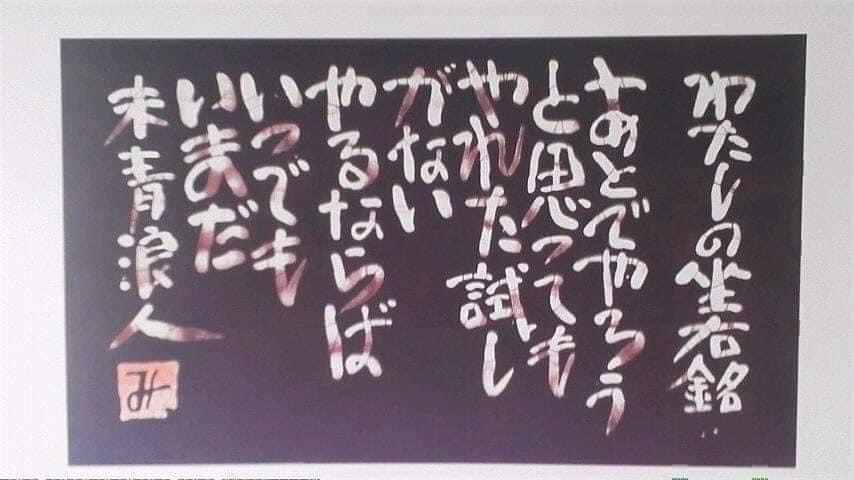 わたしの坐右銘
あとでやろう
と思っても
やれた試し
がない
やるならば
いつでも
いまだ
未青浪人
み